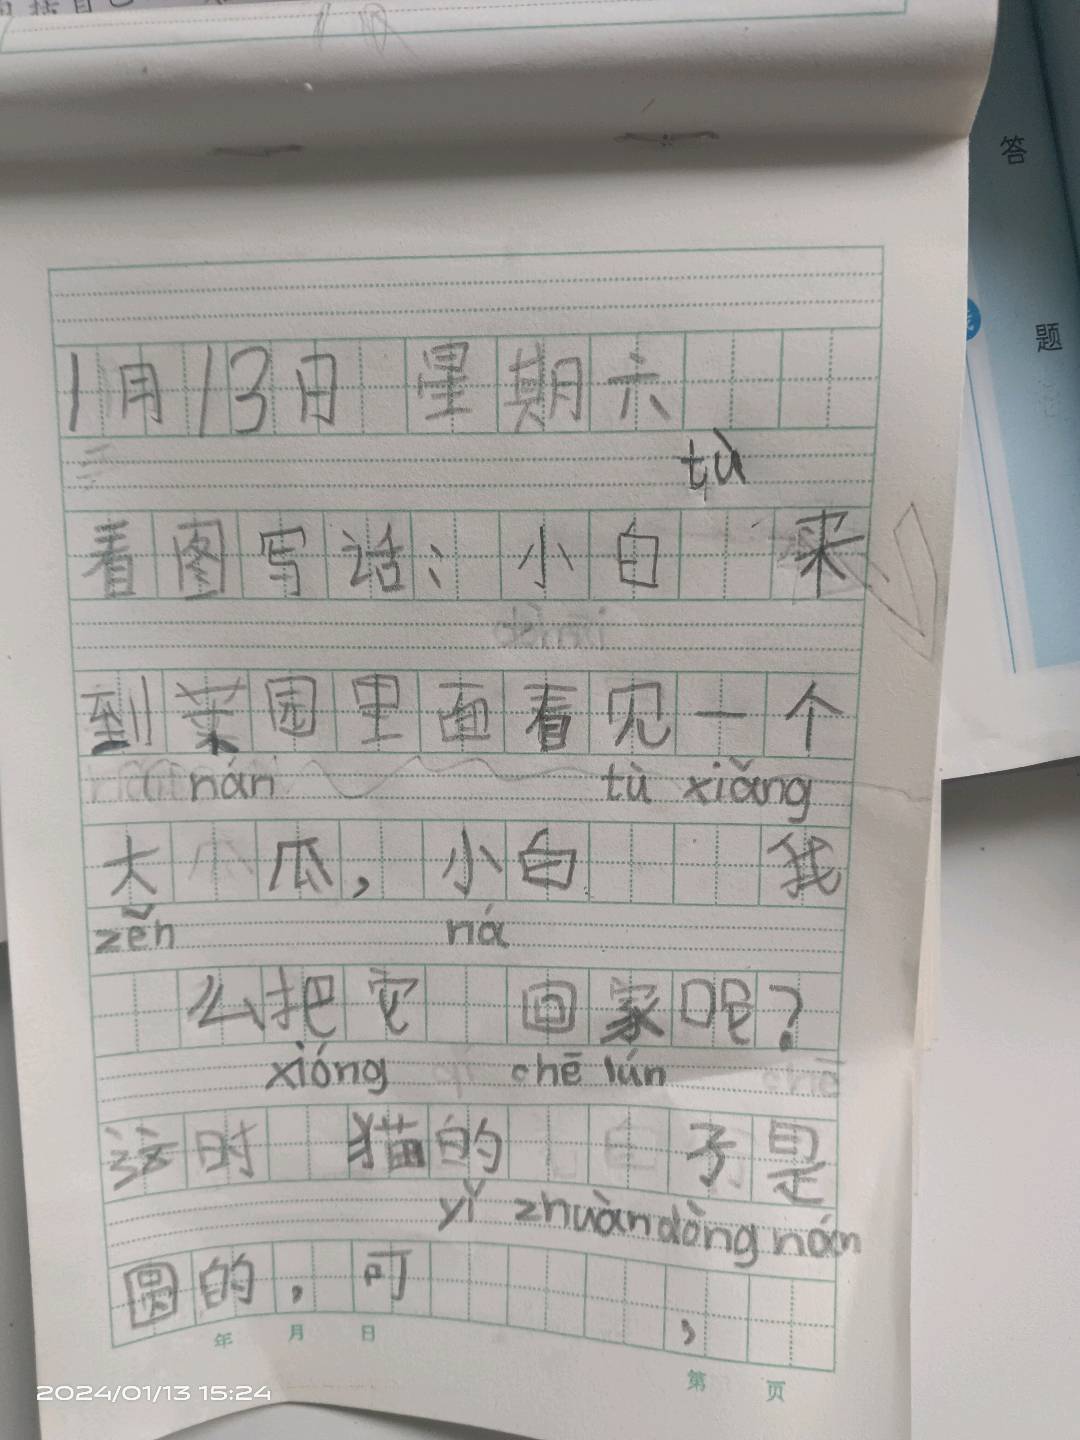 答
题
1月13日 星期六
tù
看图写话：小白 来
到菜园里面看见一个
nán tù xiǎng
大 瓜，小白 我
zěn ná
么把它 回家呢？
xióng chē lún
这时 猫的 子是
yǐ zhuàn dòng nán
圆的，可 ，
年 月 日
第 页
2024/01/13 15:24